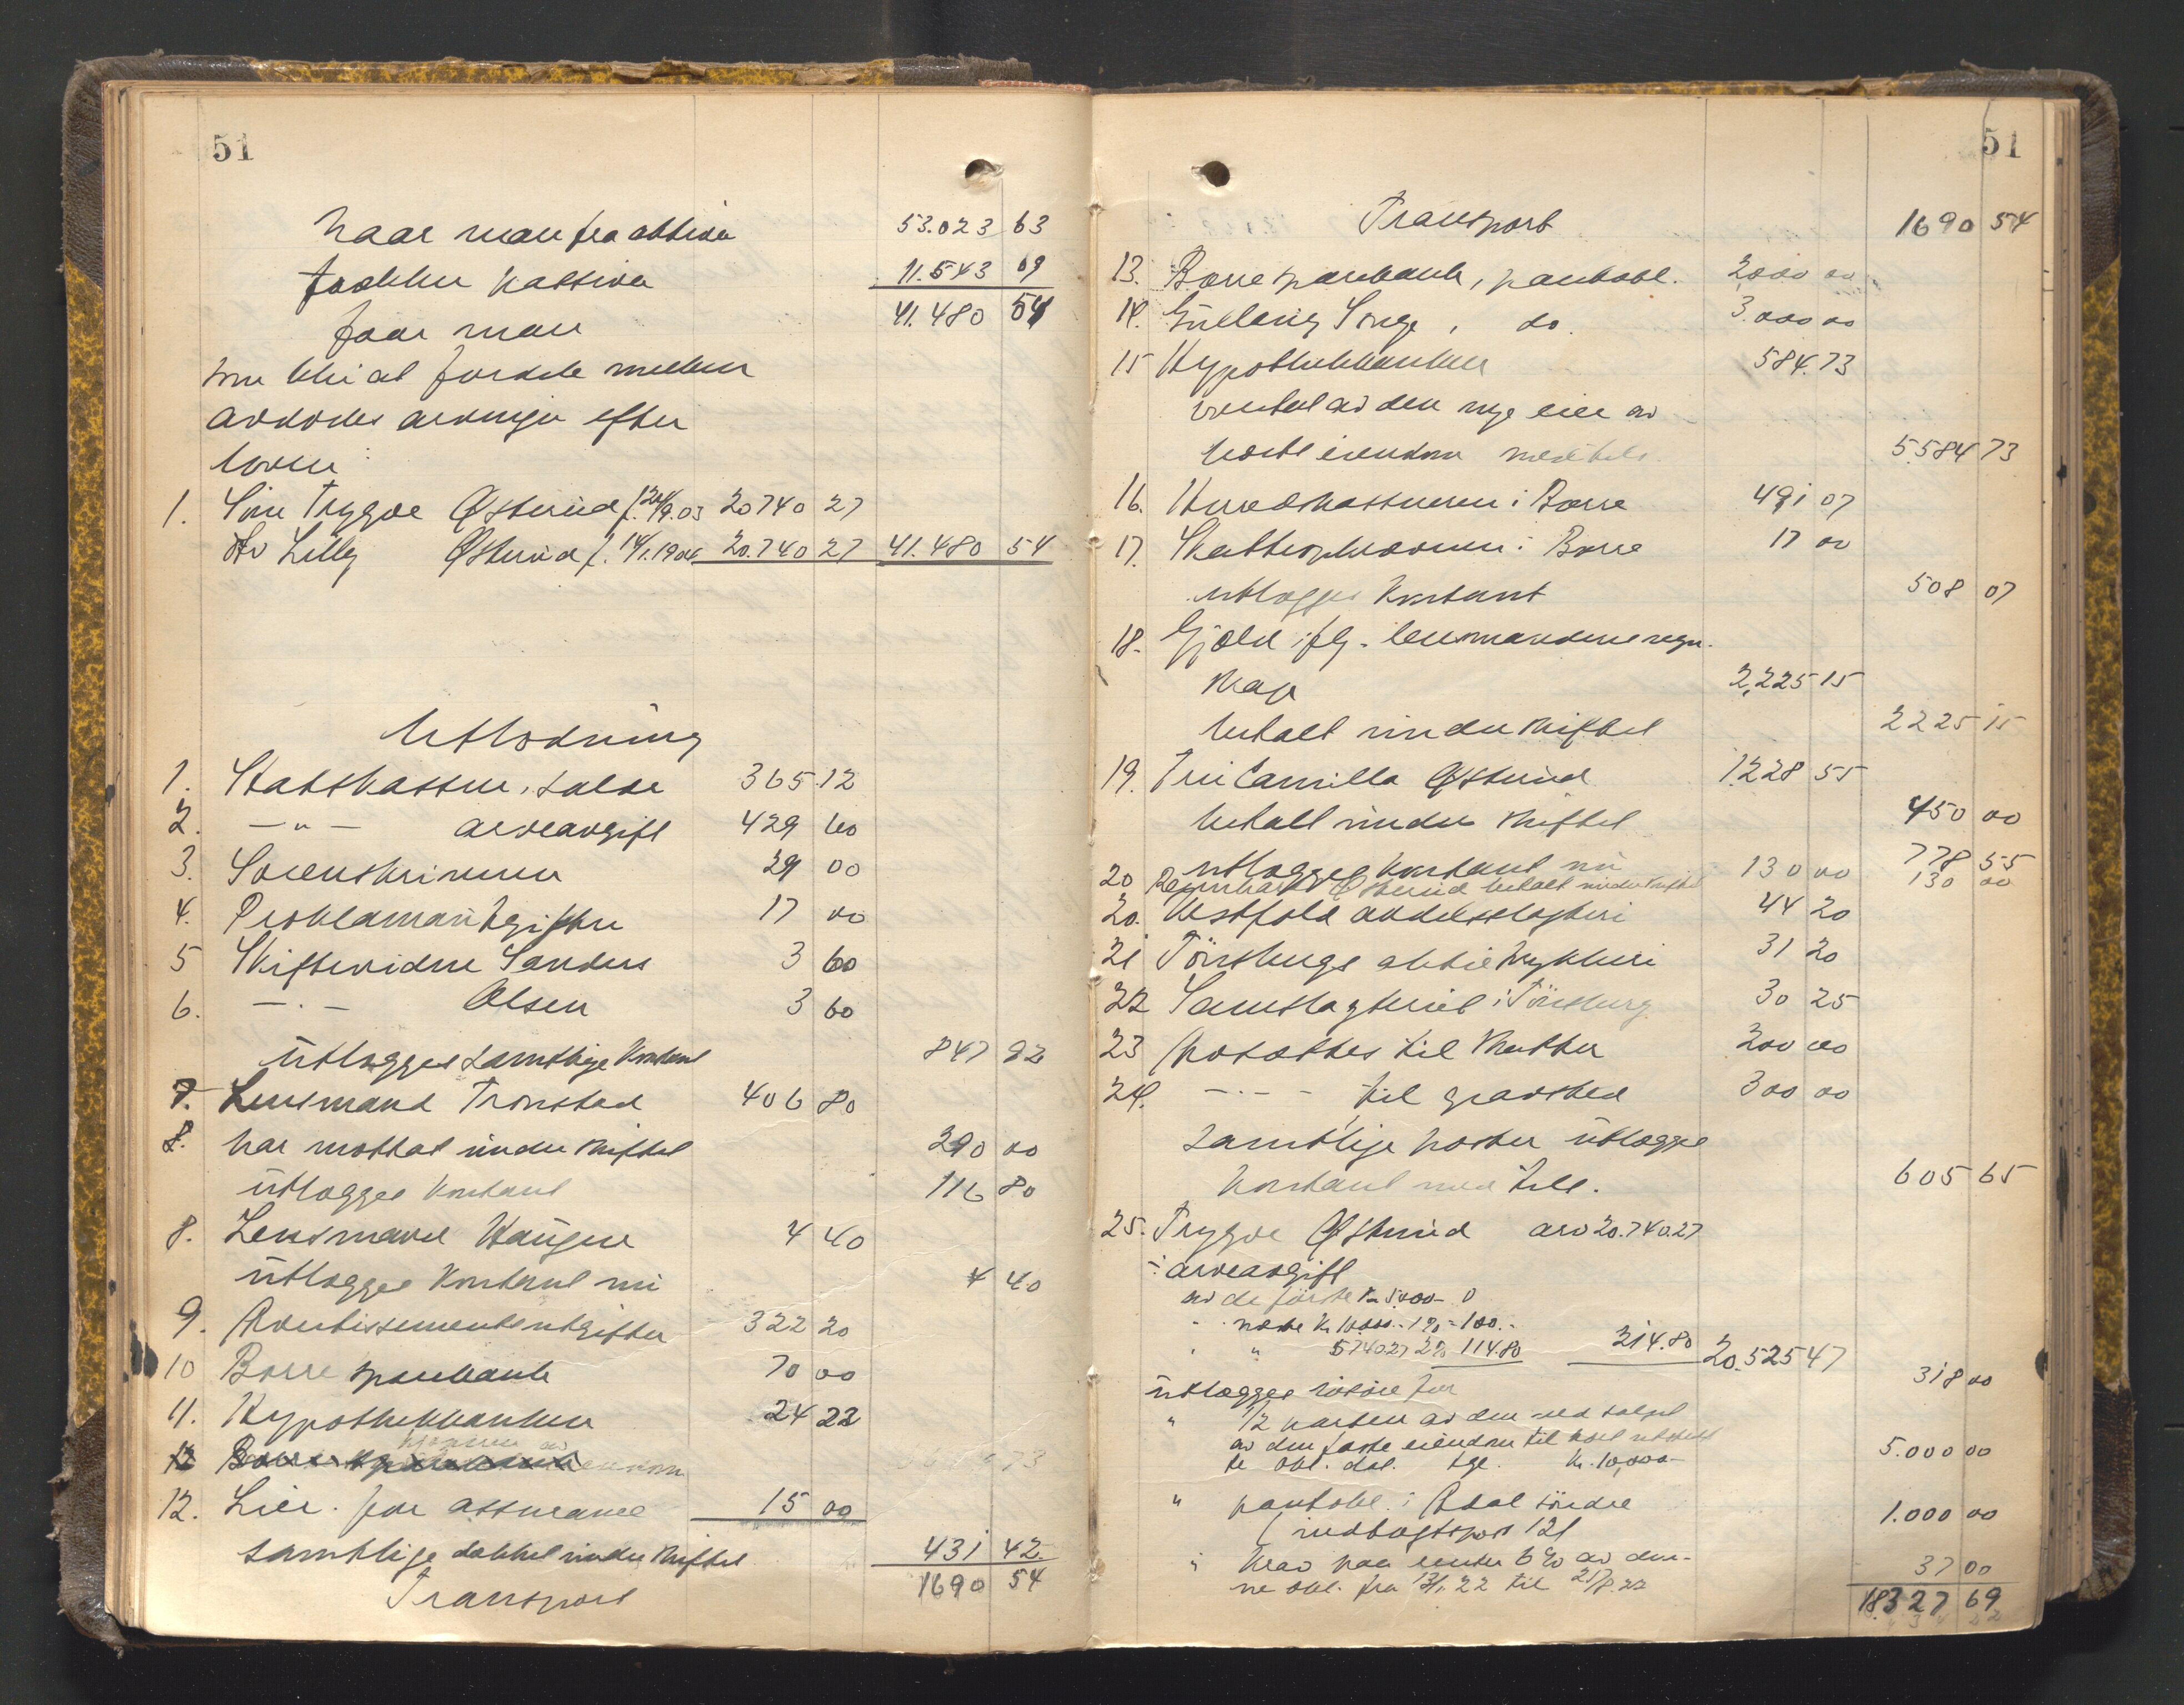 51
Naar man fra aktiva 53.023 63
trækker passiva 11.543 09
faar man 41.480 54
som blir at fordele mellem
avdødes arvinger efter
loven:
1. Søn Trygve Østerud f. 24/9.03 20740 27
Lilly Østerud f. 14/1.1904 20.740 27 41.480 54
Utlodning
1. Statskassen, 365.12
2. —"— arveavgift 429 60
3. Sorenskriveren 29 00
4. Proklamautgifter 17 00
5 Skiftevidne Sanders 3 60
6. —"— Olsen 3 60
utlægges samtlige kontant 847 92
7. Lensmand Tronstad 406 80
8. har mottat under skiftet 290 00
utlægges kontant 116 80
8. Lensmand Haugen 4 40
utlægges kontant nu 4 40
9. Avertissementsutgifter 322 20
10 Borre sparebank 70 00
11. Hypothekbanken 24 22
12. Lier. for assurance 15 00
samtlige dækket under skiftet 431 42
Transport 1690 54
51
Transport 1690 54
13. Borre sparebank, pantobl. 2000 00
14. Gullaug Sorge, do. 3.000 00
15 Hypothekbanken 584.73
overtat av den nye eier av
eiendom 5.584 73
16. Herredskassereren i Borre 491 07
17. Skatteopkræveren i Borre 17 00
utlægges kontant 508 07
18. Gjæld ifly. lensmandens regn-
skap 2,225 15
betalt under skiftet 2225 15
19. Fru Camilla Østerud 1.228 55
betalt under skiftet 450 00
utlægges kontant nu 778 55
20 Østerud betalt under skiftet 130 00 130 00
20. Vestfold andelsslagteri 44 20
21 Tønsbergs aktietrykkeri 31 20
22 Samslagteriet i Tønsberg 30 25
23 Avsættes til skatter 200 00
24. —"— til gravsted 300 00
samtlige poster utlægges
kontant med tils. 605 65
25. Trygve Østerud arv 20.740.27
÷ arveavgift
av de første Kr 5000 - 0
" næste Kr 10.000.- 1% = 100.-
" " 5740.27 2% 114.80 214.80 20.525 47
utlægges løsøre for 318 00
" 1/2 parten av den ved salget
av den faste eiendom til
te obl. dat. Kr. 10,000 5.000 00
" pantobl. i søndre
( indtægtspost 12) 1.000 00
" krav paa renter 6% av den-
ne obl. fra 13/1. 22 til 25/8.22 37 00
18.327 69